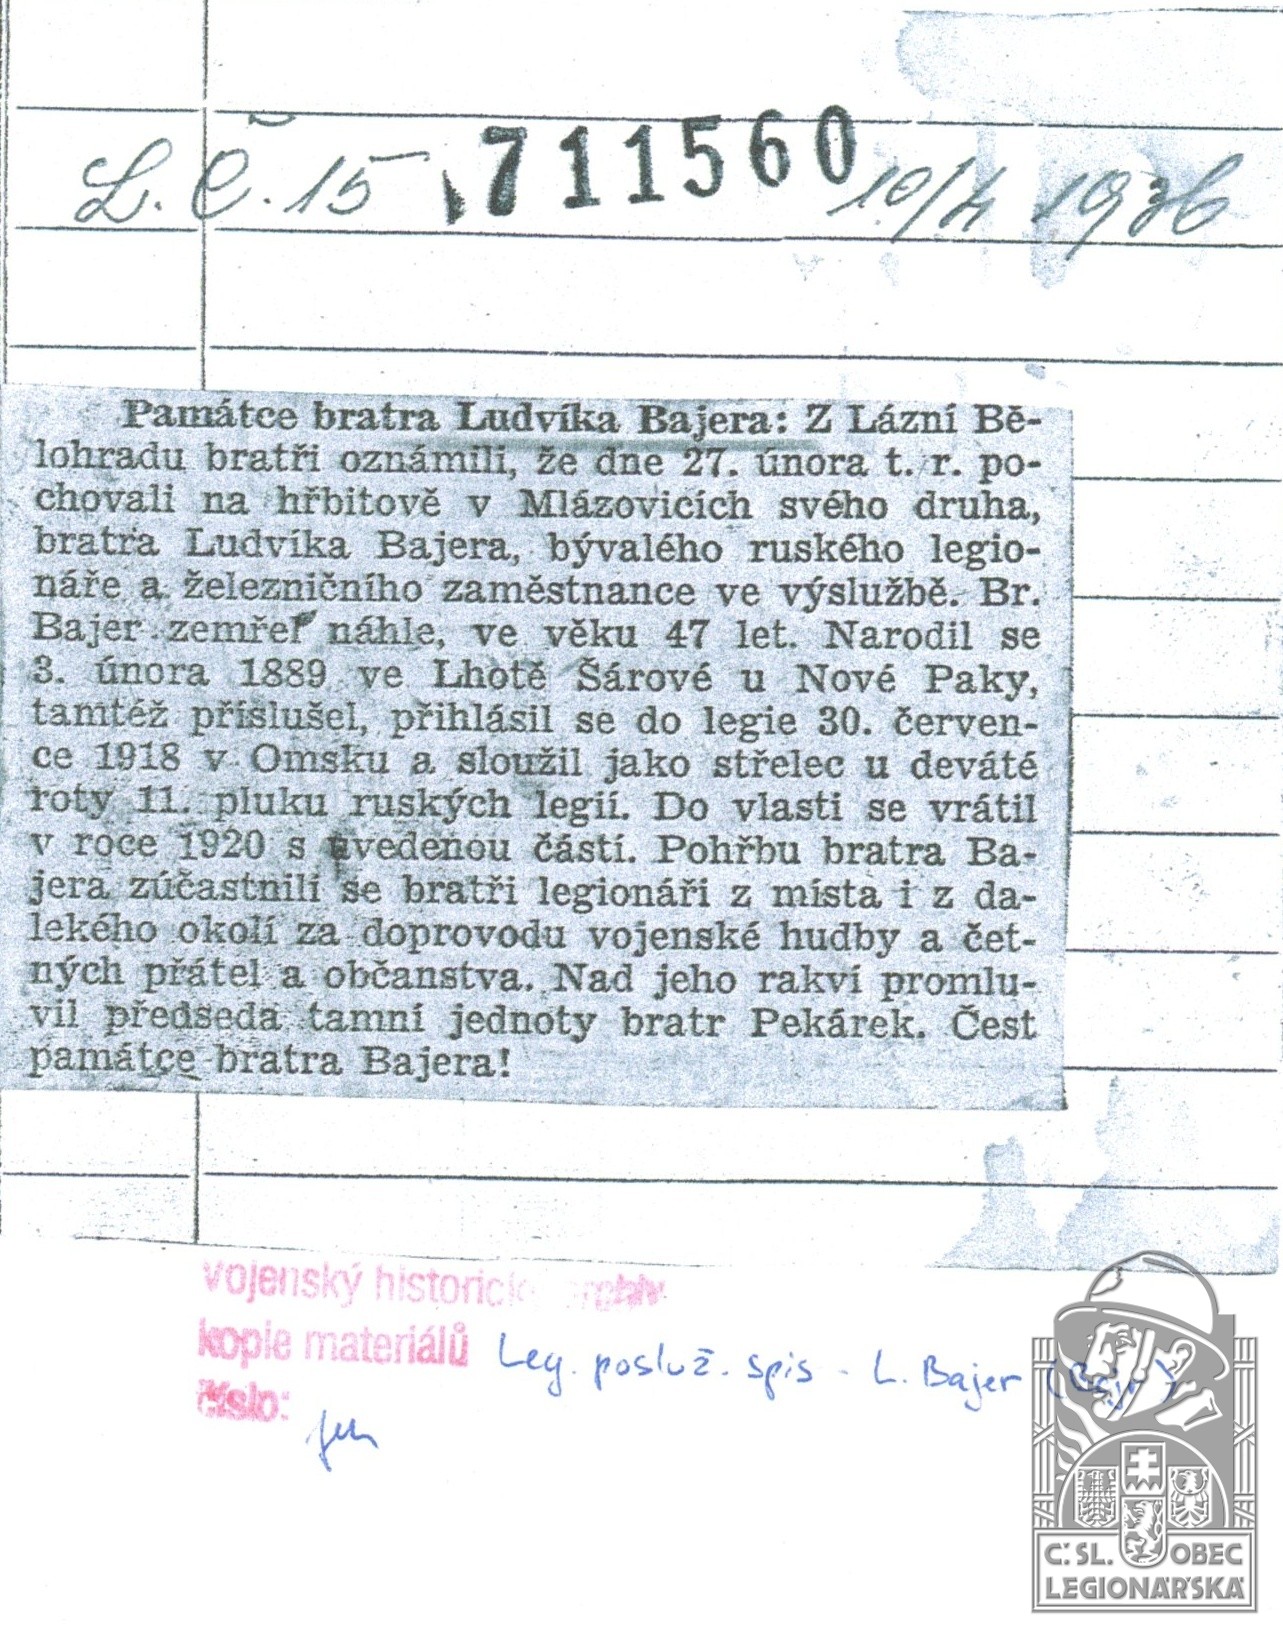 L. Č. 15 711560 10/4 1936
Památce bratra Ludvíka Bajera: Z Lázní Bě-
lohradu bratři oznámili, že dne 27. února t. r. po-
chovali na hřbitově v Mlázovicích svého druha,
bratra Ludvíka Bajera, bývalého ruského legio-
náře a železničního zaměstnance ve výslužbě. Br.
Bajer zemřel náhle, ve věku 47 let. Narodil se
3. února 1889 ve Lhotě Šárové u Nové Paky,
tamtéž příslušel, přihlásil se do legie 30. červen-
ce 1918 v Omsku a sloužil jako střelec u deváté
roty 11. pluku ruských legií. Do vlasti se vrátil
v roce 1920 s uvedenou částí. Pohřbu bratra Ba-
jera zúčastnili se bratři legionáři z místa i z da-
lekého okolí za doprovodu vojenské hudby a čet-
ných přátel a občanstva. Nad jeho rakví promlu-
vil předseda tamní jednoty bratr Pekárek. Čest
památce bratra Bajera!
vojenský historický archiv
kopie materiálů Leg. posluž. spis - L. Bajer
číslo:
Č.SL. OBEC
LEGIONÁŘSKÁ